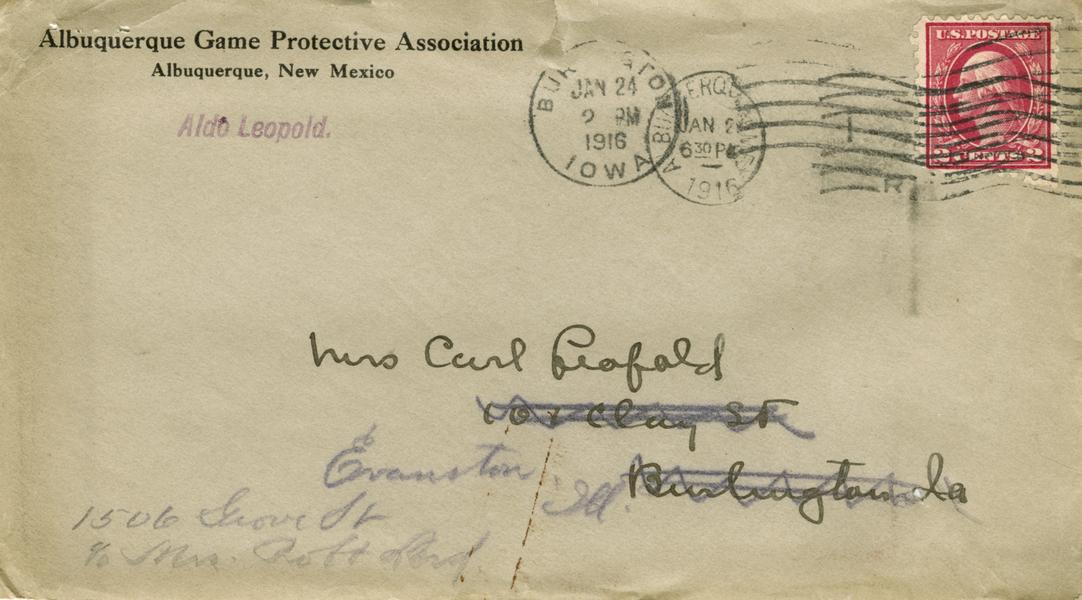 Albuquerque Game Protective Association
Albuquerque, New Mexico
Aldo Leopold.
BURLINGTON
JAN 24
2 PM
1916
IOWA
JAN 2
6 30 P
1916
U.S. POSTAGE
2 CENTS 2
Mrs Carl Leopold
101 Clay St
Burlington Ia
Evanston Ill.
1506 Grove St
c/o Mrs.